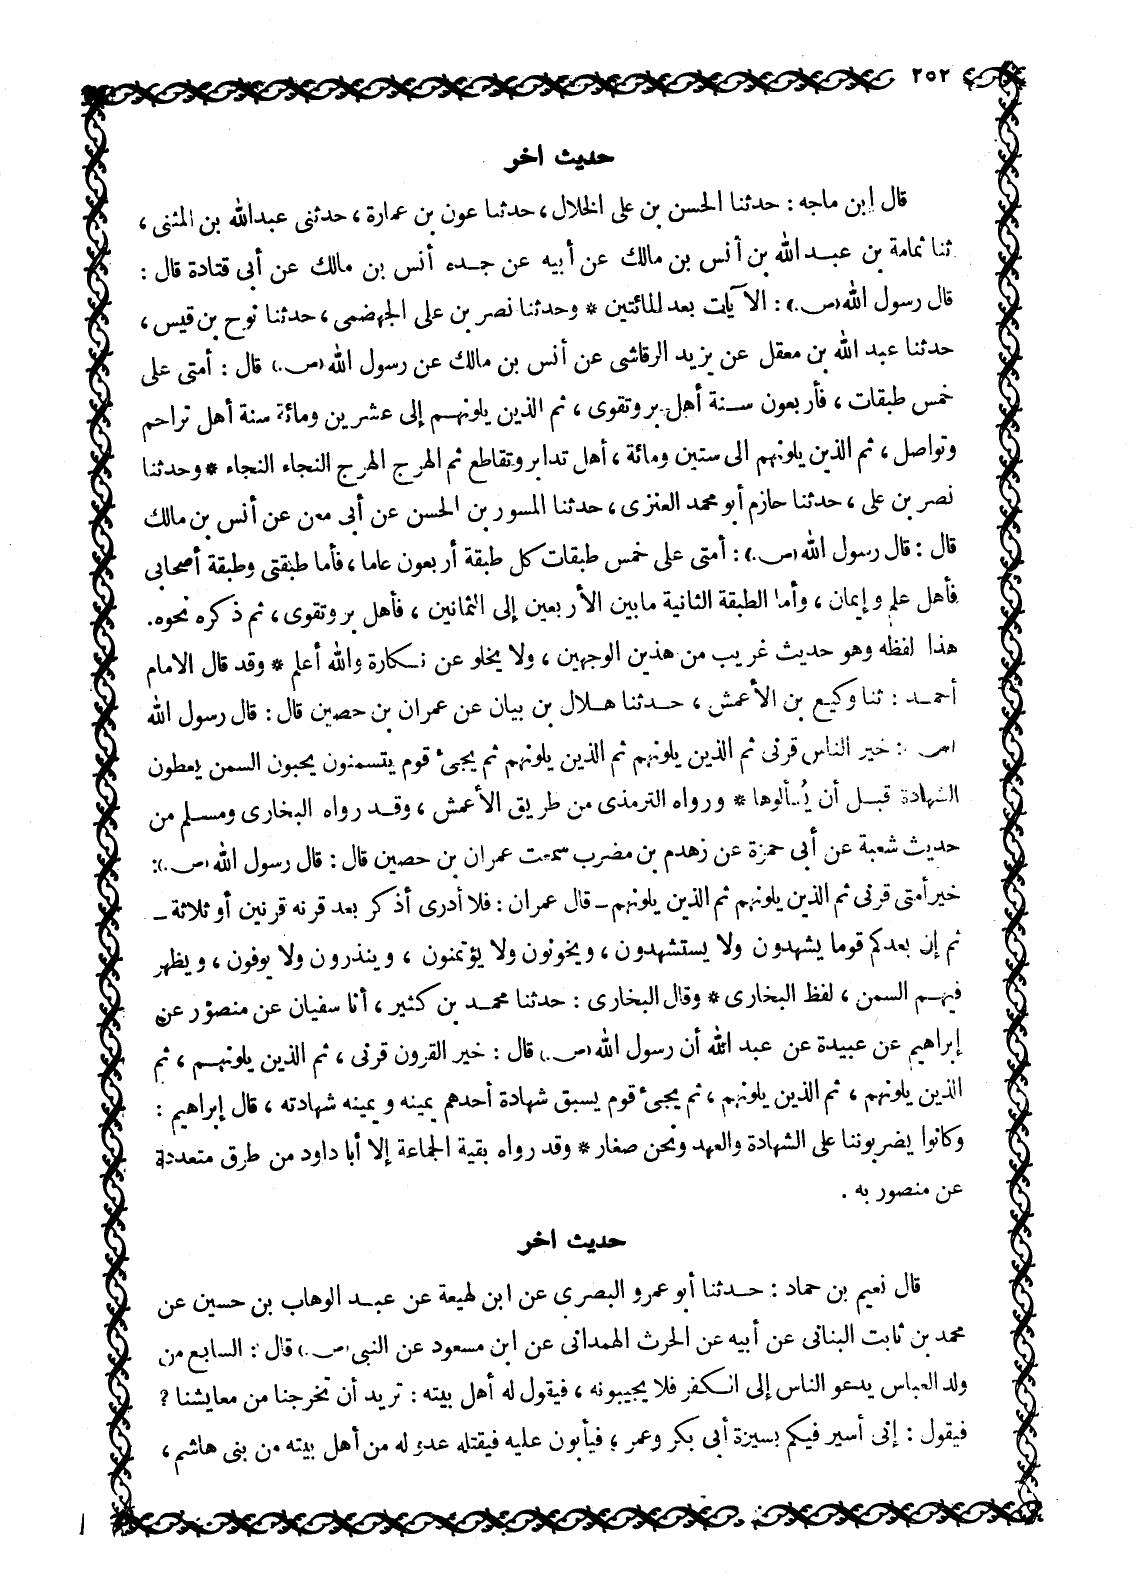 ٢٥٢
حديث اخر
قال إبن ماجه : حدثنا الحسن بن على الخلال، حدثنا عون بن عمارة ، حدثنى عبدالله بن المثنى ،
ثنا ثمامة بن عبد الله بن أنس بن مالك عن أبيه عن جده أنس بن مالك عن أبى قتادة قال :
قال رسول الله (ص.) : الآيات بعد المائتين * وحدثنا نصر بن على الجهضمى ، حدثنا نوح بن قيس ،
حدثنا عبد الله بن معقل عن يزيد الرقاشى عن أنس بن مالك عن رسول الله (ص.) قال : أمتى على
خمس طبقات ، فأربعون سنة أهل بر وتقوى ، ثم الذين يلونهم إلى عشرين ومائة سنة أهل تراحم
وتواصل ، ثم الذين يلونهم الى ستين ومائة ، أهل تدابر وتقاطع ثم الهرج الهرج النجاء النجاء * وحدثنا
نصر بن على ، حدثنا حازم أبو محمد العنزى ، حدثنا المسور بن الحسن عن أبى معن عن أنس بن مالك
قال : قال رسول الله (ص.) : أمتى على خمس طبقات كل طبقة أربعون عاما ، فأما طبقتى وطبقة أصحابى
فأهل علم وإيمان ، وأما الطبقة الثانية مابين الأربعين إلى الثمانين ، فأهل بر وتقوى ، ثم ذكره نحوه.
هذا لفظه وهو حديث غريب من هذين الوجهين ، ولا يخلو عن نكارة والله أعلم * وقد قال الامام
أحمد : ثنا وكيع بن الأعمش ، حدثنا هلال بن بيان عن عمران بن حصين قال : قال رسول الله
(ص.) : خير الناس قرنى ثم الذين يلونهم ثم الذين يلونهم ثم يجىء قوم يتسمنون يحبون السمن يعطون
الشهادة قبل أن يُسألوها * ورواه الترمذى من طريق الأعمش ، وقد رواه البخارى ومسلم من
حديث شعبة عن أبى حمزة عن زهدم بن مضرب سمعت عمران بن حصين قال : قال رسول الله (ص.):
خير أمتى قرنى ثم الذين يلونهم ثم الذين يلونهم ــ قال عمران : فلا أدرى أذكر بعد قرنه قرنين أو ثلاثة ــ
ثم إن بعدكم قوما يشهدون ولا يستشهدون ، ويخونون ولا يؤتمنون ، وينذرون ولا يوفون ، ويظهر
فيهم السمن ، لفظ البخارى * وقال البخارى : حدثنا محمد بن كثير ، أنا سفيان عن منصور عن
إبراهيم عن عبيدة عن عبد الله أن رسول الله (ص.) قال : خير القرون قرنى ، ثم الذين يلونهم ، ثم
الذين يلونهم ، ثم الذين يلونهم ، ثم يجىء قوم يسبق شهادة أحدهم يمينه و يمينه شهادته ، قال إبراهيم :
وكانوا يضربوننا على الشهادة والعهد ونحن صغار * وقد رواه بقية الجماعة إلا أبا داود من طرق متعددة
عن منصور به .
حديث اخر
قال نعيم بن حماد : حدثنا أبو عمرو البصرى عن ابن لهيعة عن عبد الوهاب بن حسين عن
محمد بن ثابت البنانى عن أبيه عن الحرث الهمدانى عن ابن مسعود عن النبى (ص.) قال : السابع من
ولد العباس يدعو الناس إلى الكفر فلا يجيبونه ، فيقول له أهل بيته : تريد أن تخرجنا من معايشنا ؟
فيقول : إنى أسير فيكم بسيرة أبى بكر وعمر ، فيأبون عليه فيقتله عدو له من أهل بيته من بنى هاشم ،